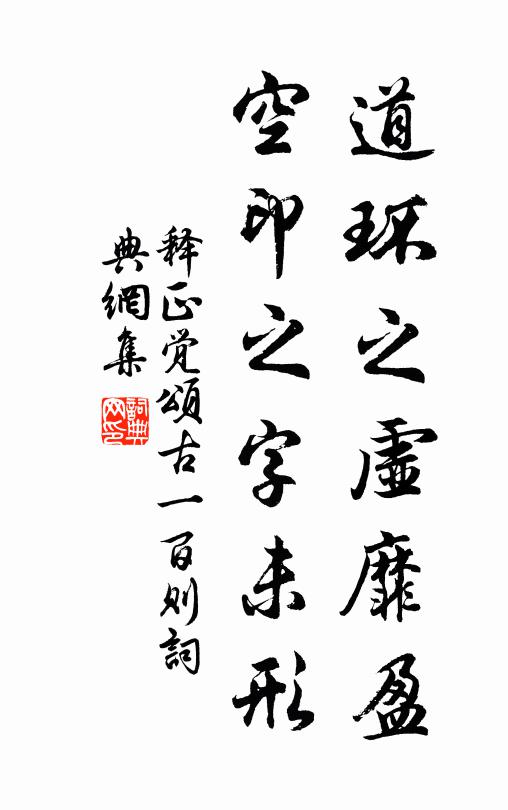 道环之虛靡盈
空印之字未形
释正觉頌古一百则詞
典網集
詞典
网印